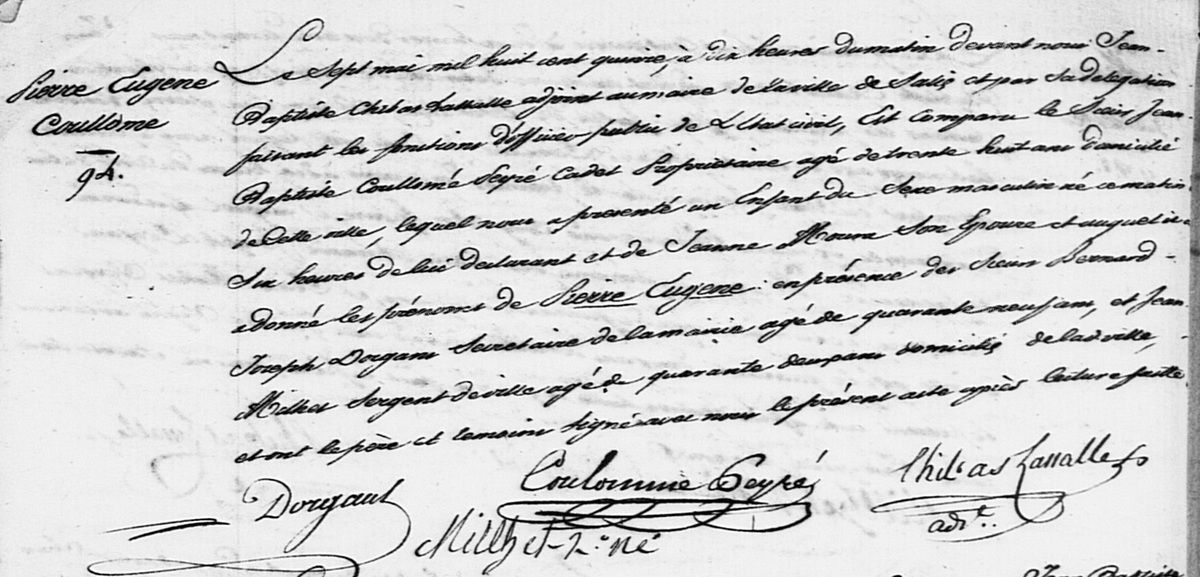 Pierre Eugene
Coullome
94.
Le Sept mai mil huit cent quinze, à dix heures du matin devant nous Jean-
Baptiste Chibas Lassalle adjoint au maire de la ville de Saliés et par Sa delegation
faisant les fonctions d'officier public de L'Etat civil, Est Comparu le Sieur Jean
Baptiste Coullomé Peyré Cadet Proprietaire agé de trente huit ans domicilié
de Cette ville, lequel nous a presenté un Enfant du Sexe masculin né ce matin
Six heures de lui declarant et de Jeanne Moura Son Epouse et auquel il a
donné les prénoms de Pierre Eugene: en présence des Sieurs Bernard-
Joseph Dorgans Secretaire de la mairie agé de quarante neuf ans, et Jean
Milhet Sergent de ville agé de quarante deux ans domiciliés de la d. ville,
et ont le père et temoins Signé avec nous le présent acte après lecture faitte
Dorgans Coulomme Peyré Chibas Lassalle
Milhet adj.t
Jean Baptiste